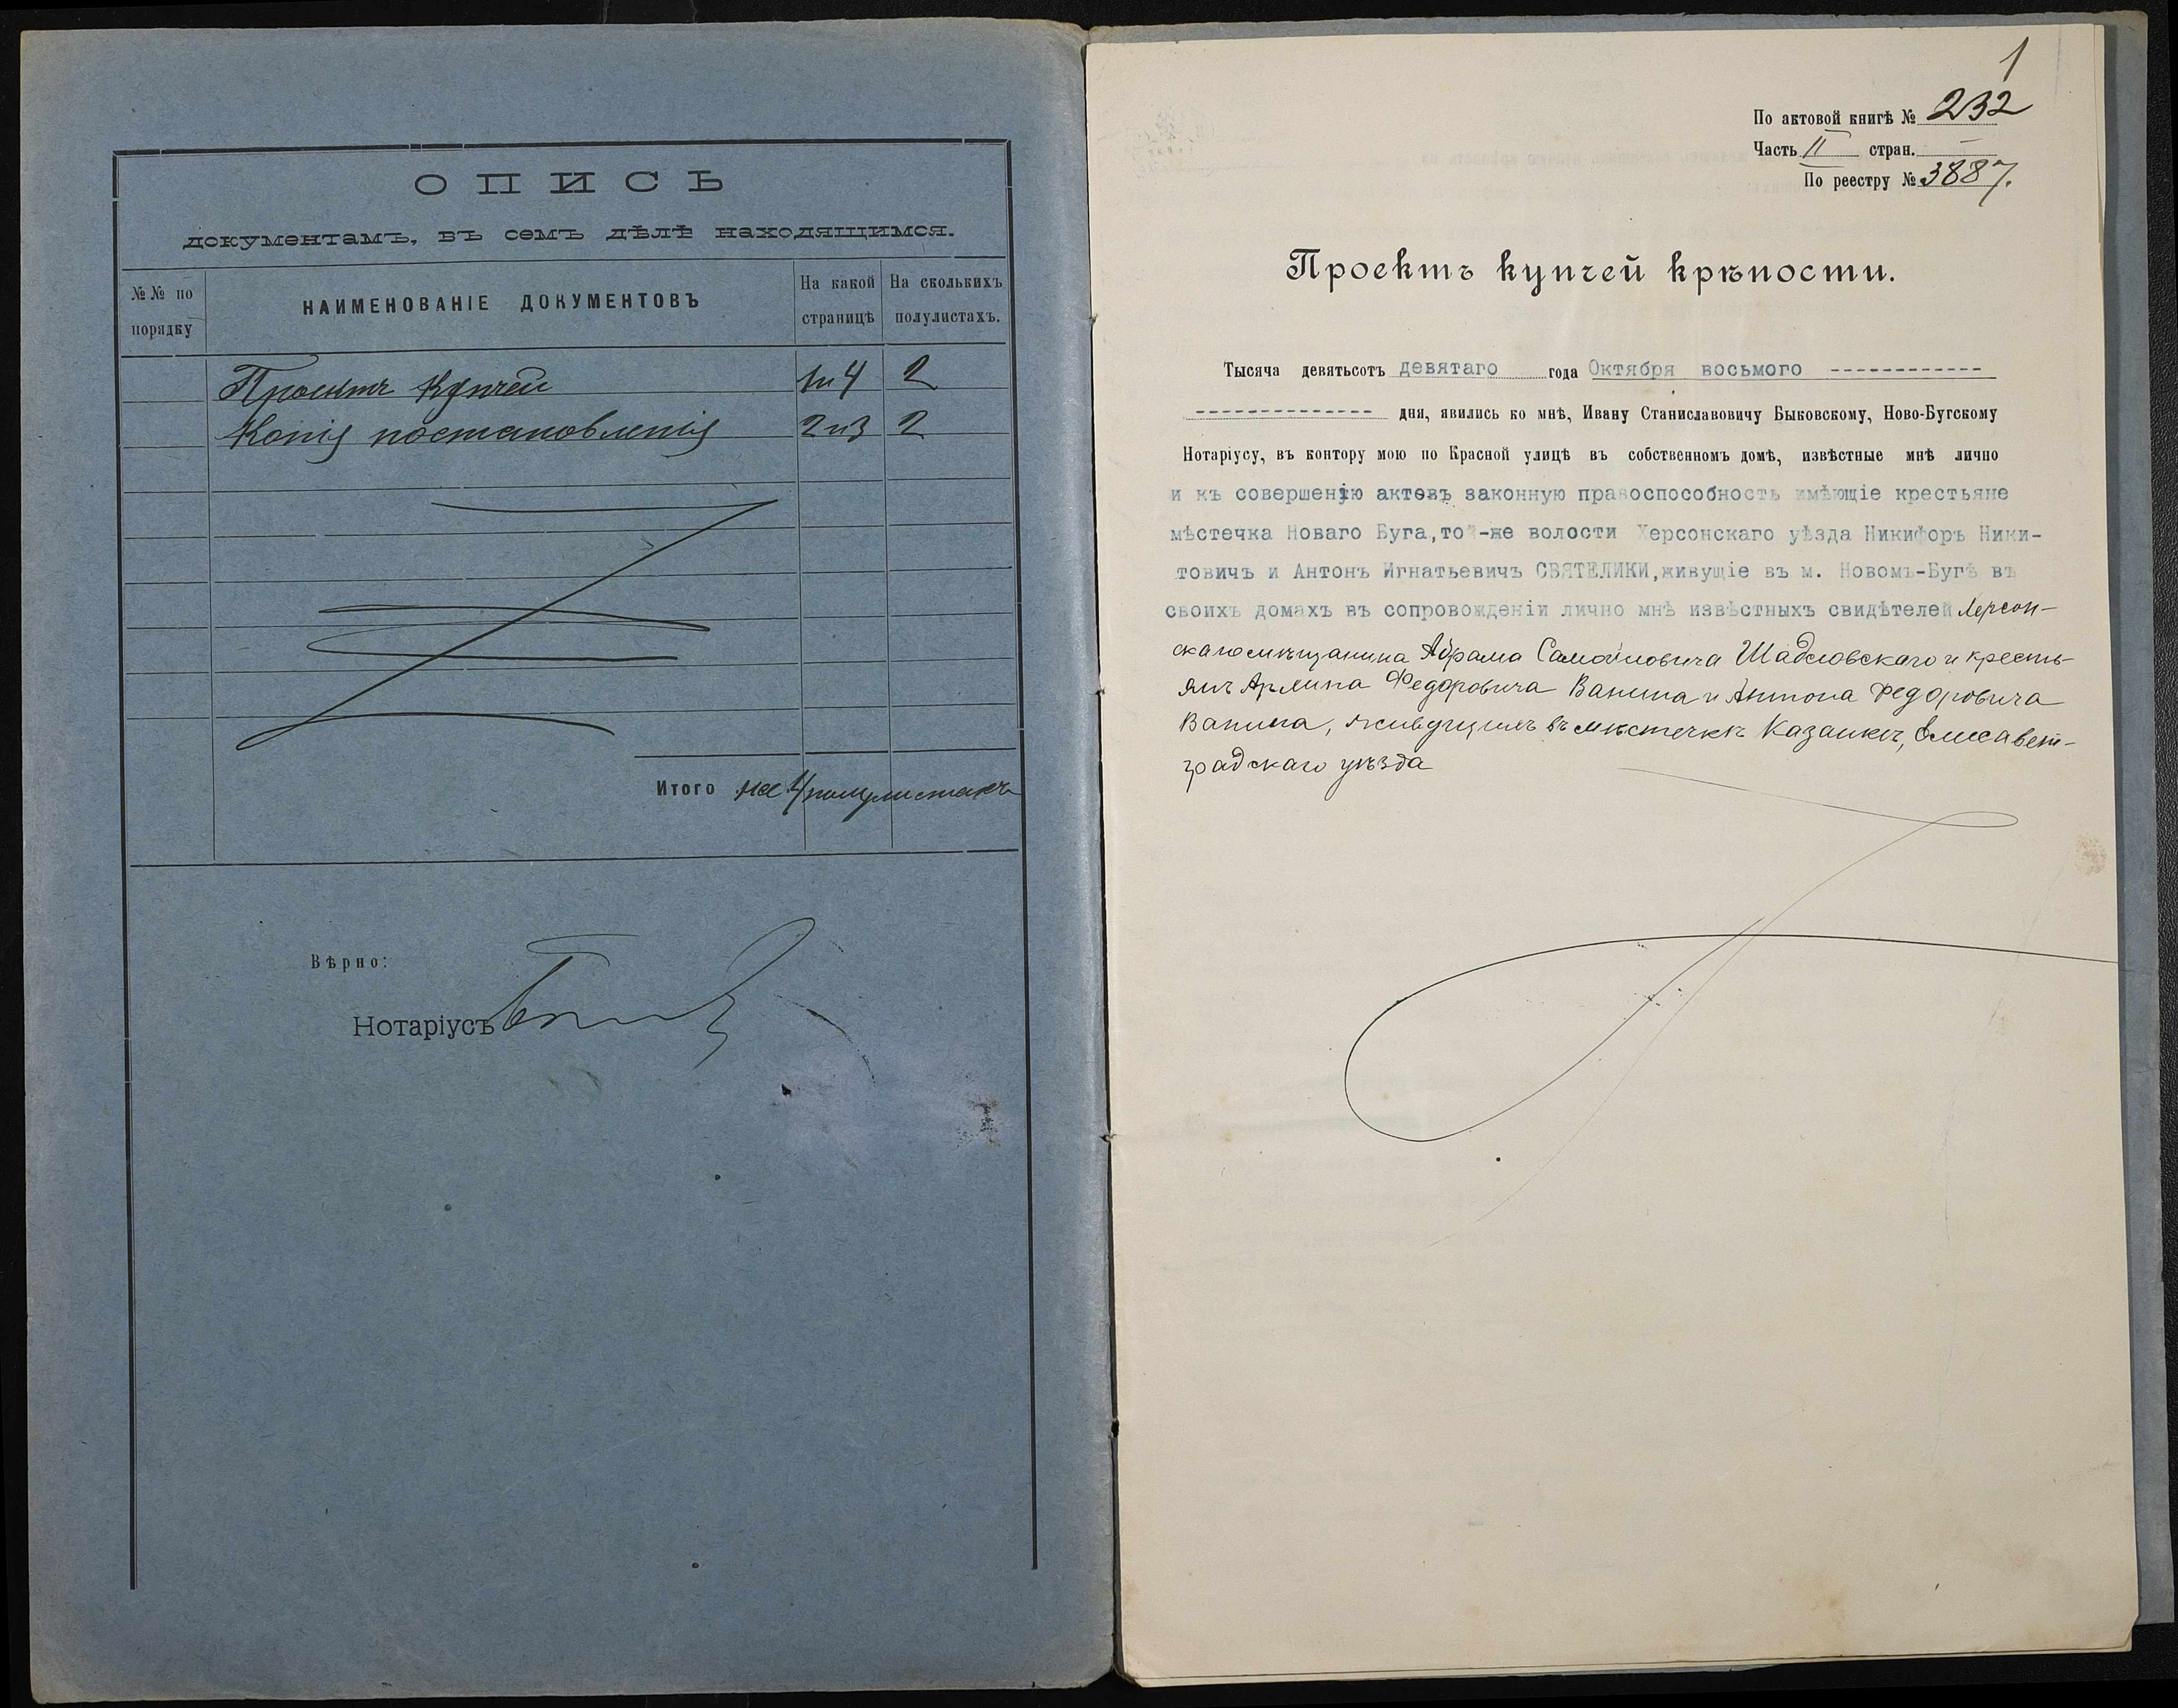 ОПИСЬ
документамъ, въ семъ дѣлѣ находящимся.
№№ по порядку
НАИМЕНОВАНІЕ ДОКУМЕНТОВЪ
На какой страницѣ
На сколькихъ полулистахъ.
Проектъ купчей 1 и 4 2
Копія постановленія 2 и 3 2
Итого на 4 полулистахъ
Вѣрно:
Нотаріусъ
1
По актовой книгѣ № 232
Часть II стран. —
По реестру № 3887.
Проектъ купчей крѣпости.
Тысяча девятьсотъ девятаго года Октября восьмого ------------
-------------- дня, явились ко мнѣ, Ивану Станиславовичу Быковскому, Ново-Бугскому
Нотаріусу, въ контору мою по Красной улицѣ въ собственномъ домѣ, извѣстные мнѣ лично
и къ совершенію актовъ законную правоспособность имѣющіе крестьяне
мѣстечка Новаго Буга,той-же волости Херсонскаго уѣзда Никифоръ Ники-
товичъ и Антонъ Игнатьевичъ СВЯТЕЛИКИ,живущіе въ м. Новомъ-Бугѣ въ
своихъ домахъ въ сопровожденіи лично мнѣ извѣстныхъ свидѣтелей Херсон-
скаго мѣщанина Абрама Самойловича Шадловскаго и кресть-
янъ Федоровича Ванина и Антона Федоровича
Ванина, живущихъ въ мѣстечкѣ Казанкѣ, Елисавет-
градскаго уѣзда